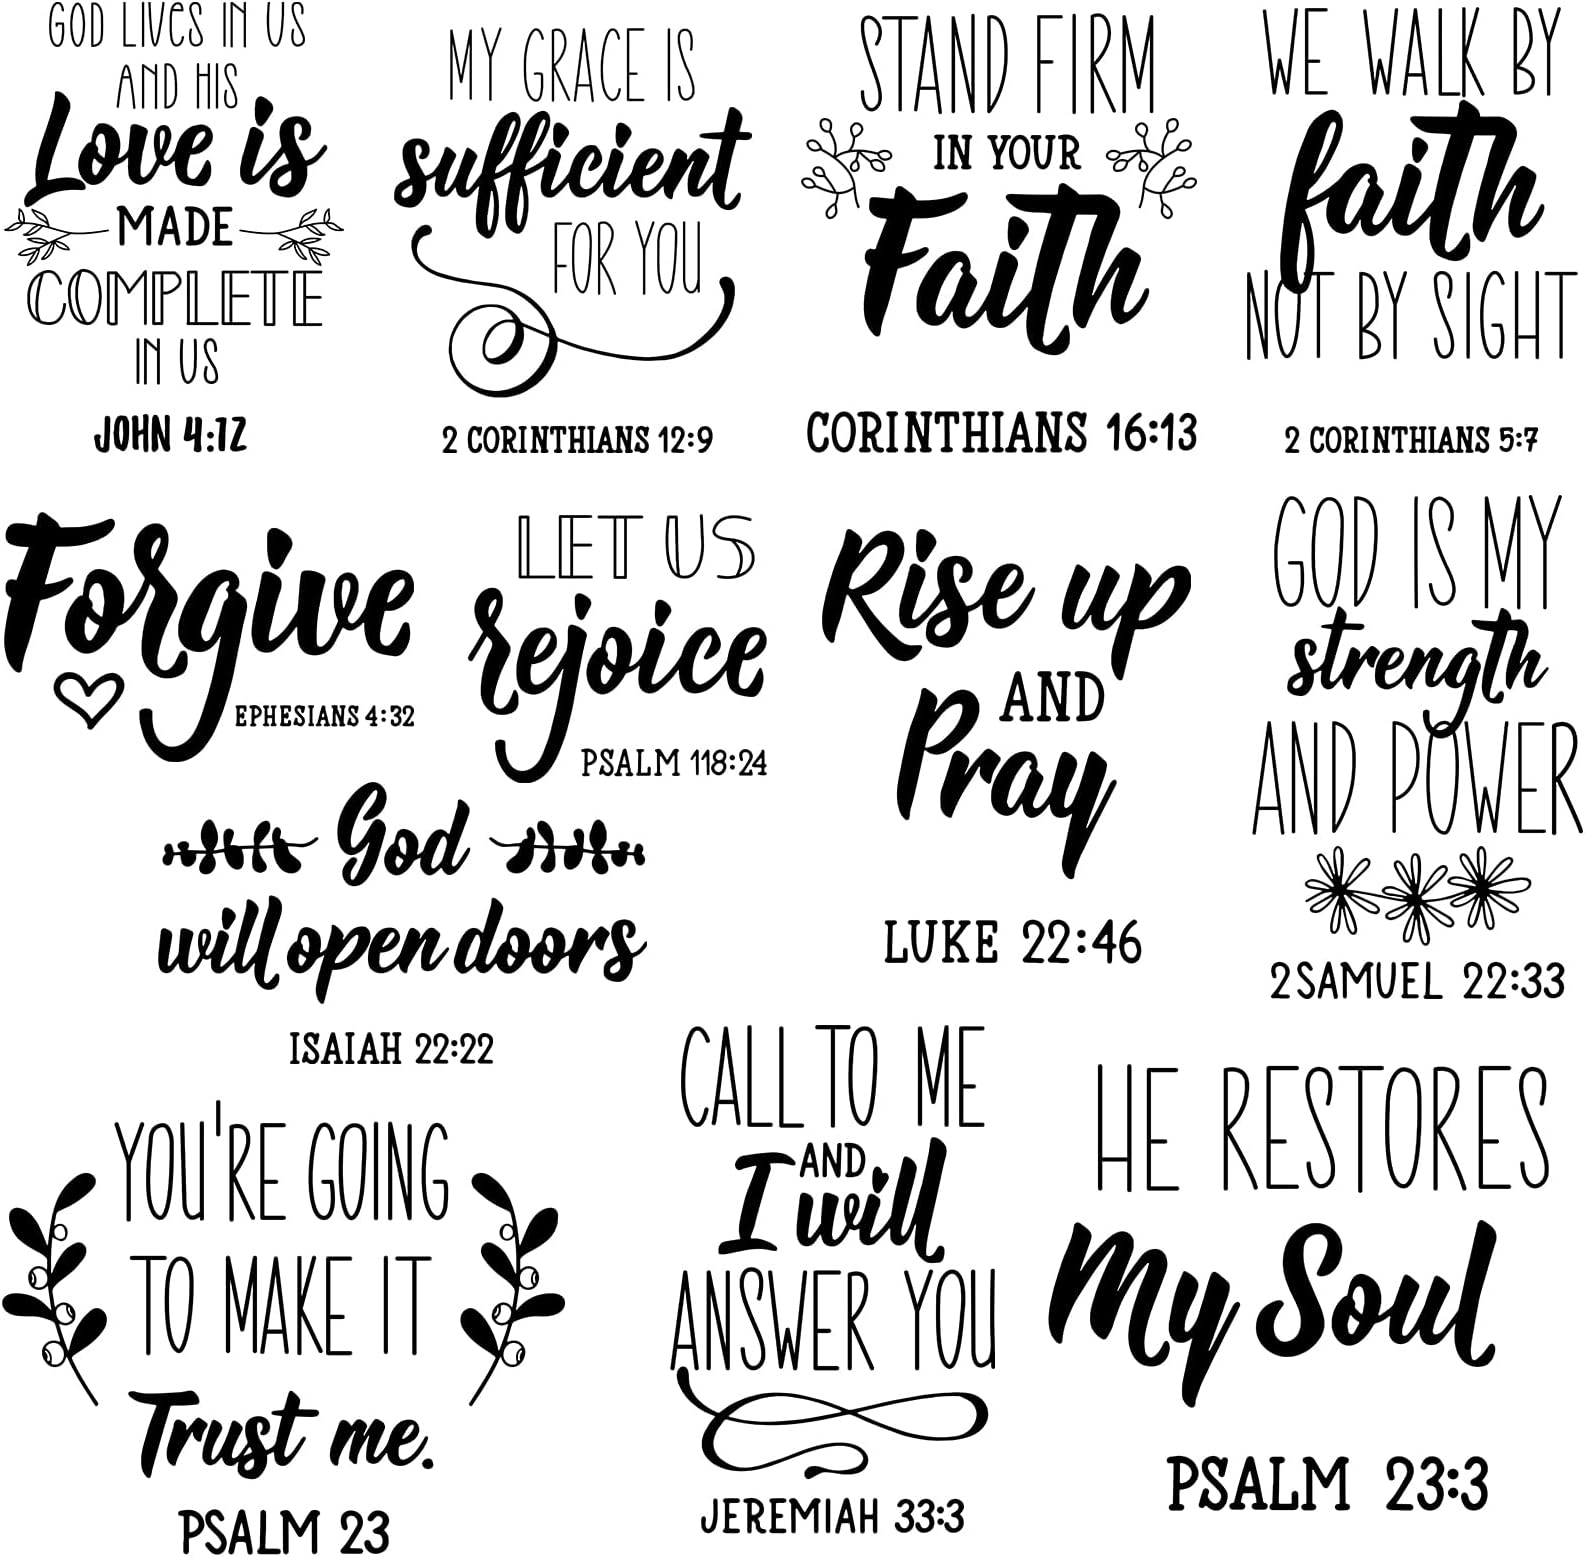 GOD LIVES IN US
AND HIS
Love is
MADE
COMPLETE
IN US
JOHN 4:12
MY GRACE IS
sufficient
FOR YOU
2 CORINTHIANS 12:9
STAND FIRM
IN YOUR
Faith
CORINTHIANS 16:13
WE WALK BY
faith
NOT BY SIGHT
2 CORINTHIANS 5:7
Forgive
EPHESIANS 4:32
LET US
rejoice
PSALM 118:24
Rise up
AND
Pray
LUKE 22:46
GOD IS MY
strength
AND POWER
2 SAMUEL 22:33
God
will open doors
ISAIAH 22:22
YOU'RE GOING
TO MAKE IT
Trust me.
PSALM 23
CALL TO ME
AND
I will
ANSWER YOU
JEREMIAH 33:3
HE RESTORES
My Soul
PSALM 23:3